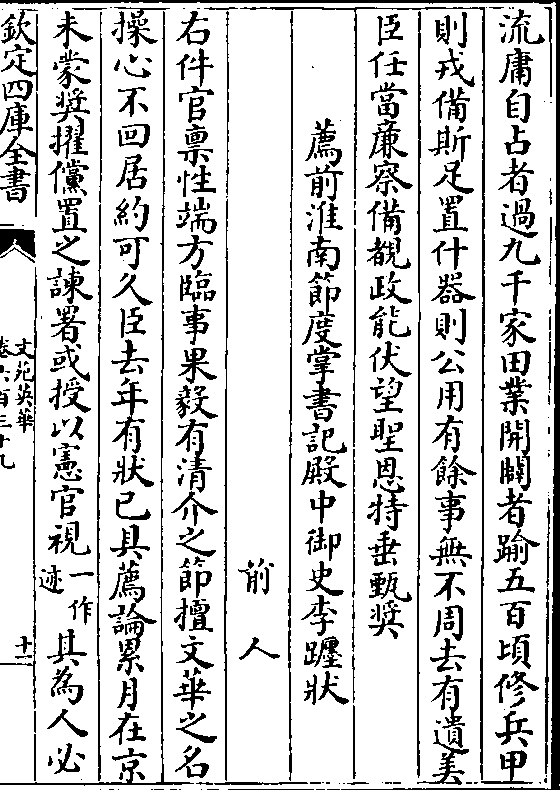 流庸自占者過九千家田業開闢者踰五百頃修兵甲
則戎備斯足置什器則公用有餘事無不周去有遺美
臣任當廉察備覩政能伏望聖恩特垂甄奬
薦前淮南節度掌書記殿中御史李躔狀
前人
右件官禀性端方臨事果毅有清介之節擅文華之名
操心不回居約可久臣去年有狀已具薦論累月在京
未蒙奬擢儻置之諫署或授以憲官視一作迹其為人必
欽定四庫全書
文苑英華
卷六百三十九
十一